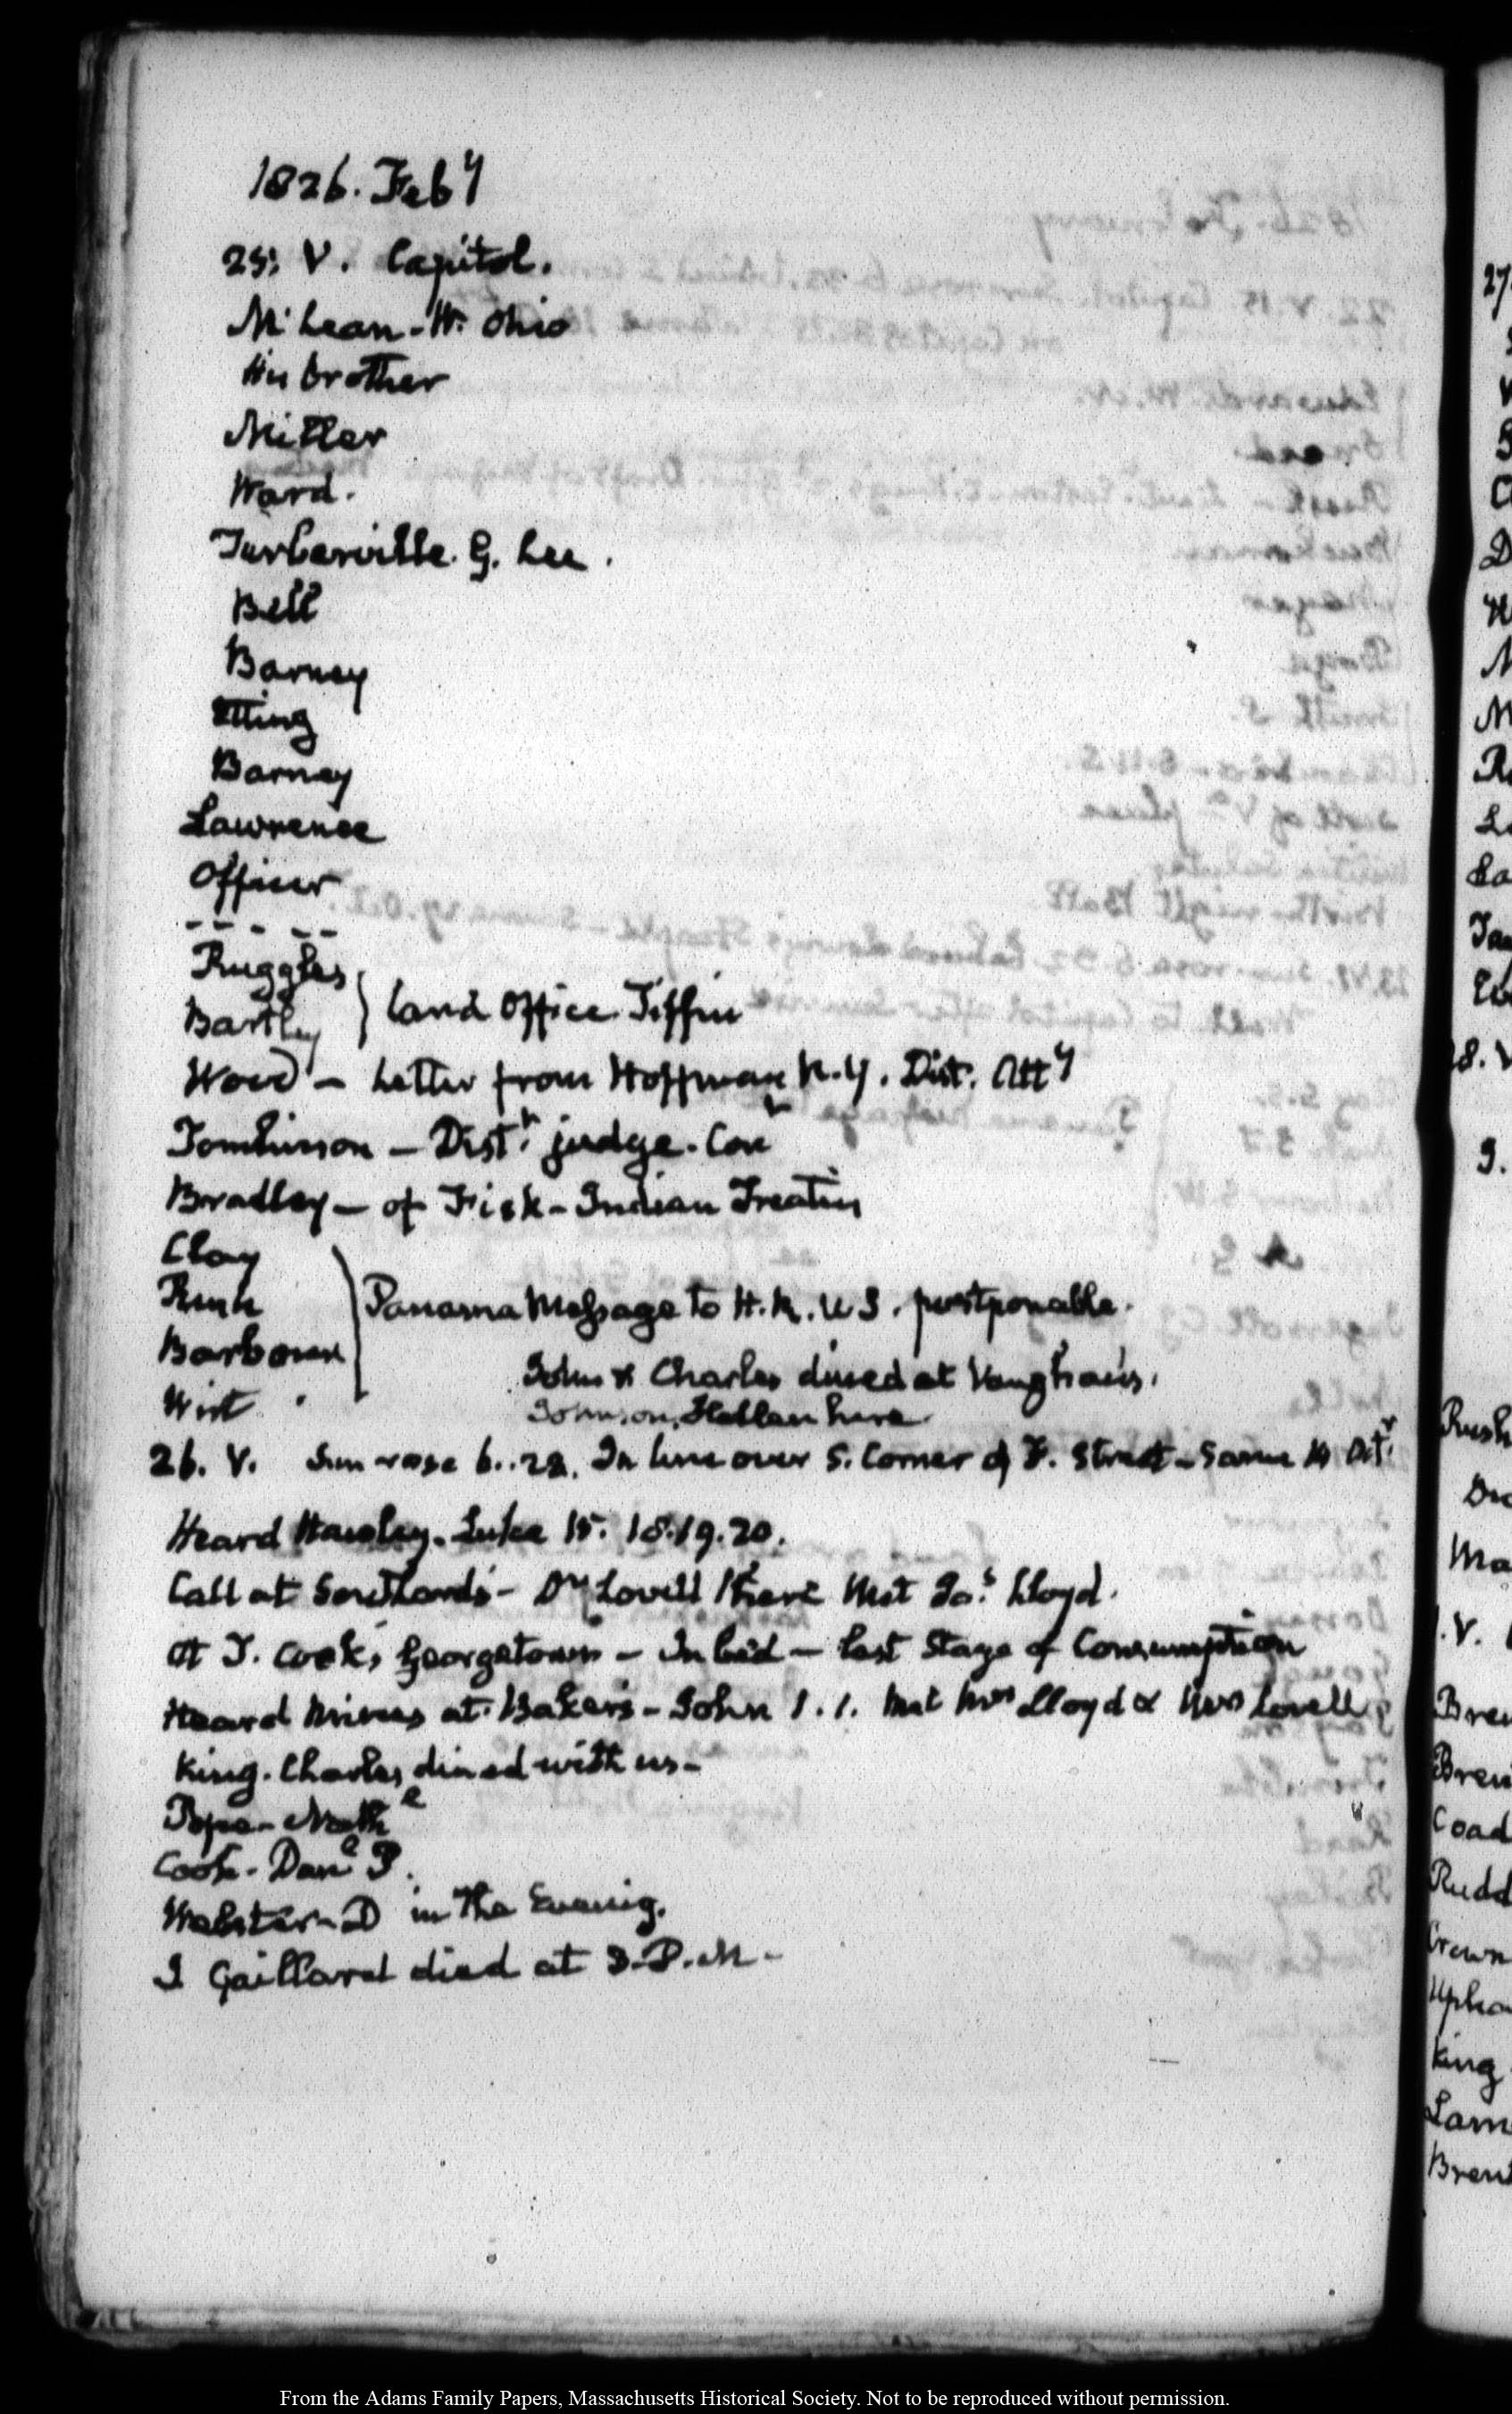 1826. Feby
25: V. Capitol.
McLean - W. Ohio
His brother
Miller
Ward.
Turberville. G. Lee.
Bell
Barney
Etting
Barney
Lawrence
Officer
- - - - -
Ruggles
Bartley } Land Office Tiffin
Wood - Letter from Hoffman N.Y. Dist. Atty
Tomlinson - Distt judge. Cont
Bradley - of Fisk - Indian Treaties
Clay
Rush } Panama Message to H.R. U S. postponable.
Barbour
John & Charles dined at Vaughan's.
Wirt
Johnson, Hellen here
26. V. Sun rose 6..28. In line over S. Corner of F. Street - Same 16 Octr
Heard Hawley. Luke 15. 18.19.20.
Call at Southard's - Dr Lovell there Met Jas Lloyd.
At J. Cook's Georgetown - In bed - last Stage of Consumption
Heard at Baker's - John 1.1. Met Mrs Lloyd & Mrs Lovell
King. Charles dined with us -
Pope - Nathl
Cook - Danl P.
Webster - D in the Evening.
J Gaillard died at 3. P.M -
From the Adams Family Papers, Massachusetts Historical Society. Not to be reproduced without permission.